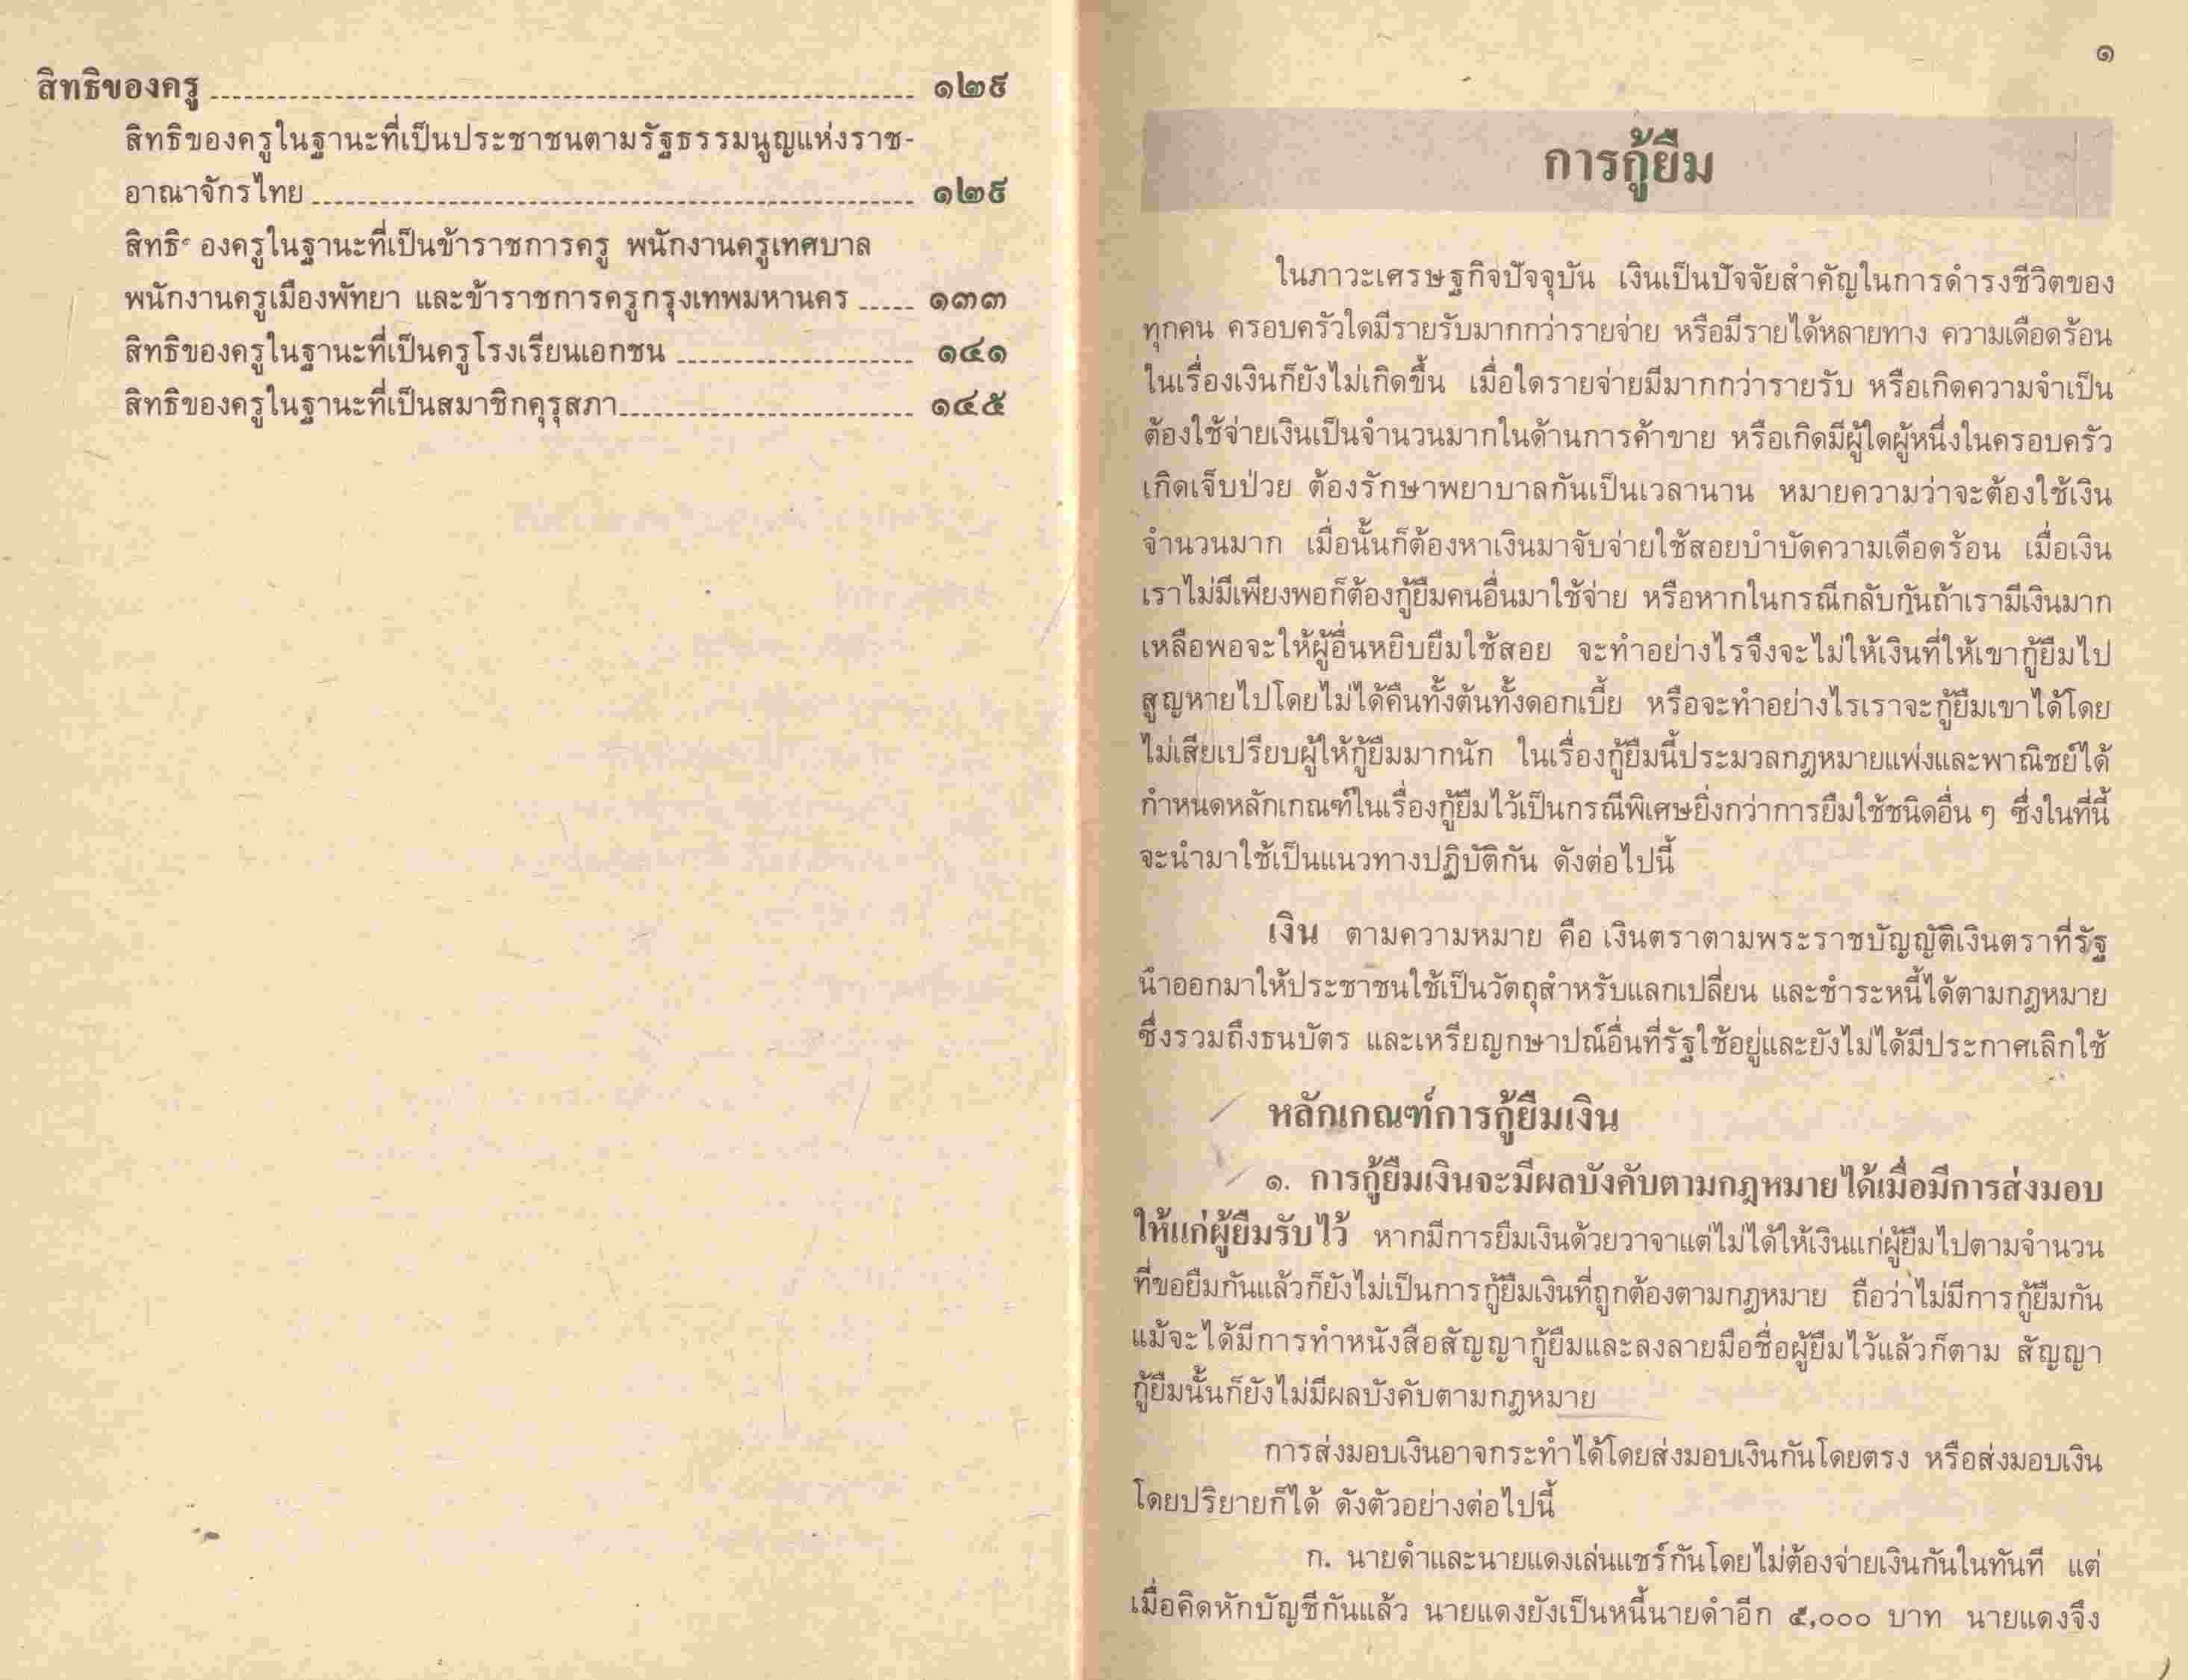 สิทธิของครู ๑๒๙
สิทธิของครูในฐานะที่เป็นประชาชนตามรัฐธรรมนูญแห่งราช-
อาณาจักรไทย ๑๒๙
สิทธิ องครูในฐานะที่เป็นข้าราชการครู พนักงานครูเทศบาล
พนักงานครูเมืองพัทยา และข้าราชการครูกรุงเทพมหานคร ๑๓๓
สิทธิของครูในฐานะที่เป็นครูโรงเรียนเอกชน ๑๔๑
สิทธิของครูในฐานะที่เป็นสมาชิกคุรุสภา ๑๔๕
๑
การกู้ยืม
ในภาวะเศรษฐกิจปัจจุบัน เงินเป็นปัจจัยสำคัญในการดำรงชีวิตของ
ทุกคน ครอบครัวใดมีรายรับมากกว่ารายจ่าย หรือมีรายได้หลายทาง ความเดือดร้อน
ในเรื่องเงินก็ยังไม่เกิดขึ้น เมื่อใดรายจ่ายมีมากกว่ารายรับ หรือเกิดความจำเป็น
ต้องใช้จ่ายเงินเป็นจำนวนมากในด้านการค้าขาย หรือเกิดมีผู้ใดผู้หนึ่งในครอบครัว
เกิดเจ็บป่วย ต้องรักษาพยาบาลกันเป็นเวลานาน หมายความว่าจะต้องใช้เงิน
จำนวนมาก เมื่อนั้นก็ต้องหาเงินมาจับจ่ายใช้สอยบำบัดความเดือดร้อน เมื่อเงิน
เราไม่มีเพียงพอก็ต้องกู้ยืมคนอื่นมาใช้จ่าย หรือหากในกรณีกลับกันถ้าเรามีเงินมาก
เหลือพอจะให้ผู้อื่นหยิบยืมใช้สอย จะทำอย่างไรจึงจะไม่ให้เงินที่ให้เขากู้ยืมไป
สูญหายไปโดยไม่ได้คืนทั้งต้นทั้งดอกเบี้ย หรือจะทำอย่างไรเราจะกู้ยืมเขาได้โดย
ไม่เสียเปรียบผู้ให้กู้ยืมมากนัก ในเรื่องกู้ยืมนี้ประมวลกฎหมายแพ่งและพาณิชย์ได้
กำหนดหลักเกณฑ์ในเรื่องกู้ยืมไว้เป็นกรณีพิเศษยิ่งกว่าการยืมใช้ชนิดอื่น ๆ ซึ่งในที่นี้
จะนำมาใช้เป็นแนวทางปฏิบัติกัน ดังต่อไปนี้
เงิน ตามความหมาย คือ เงินตราตามพระราชบัญญัติเงินตราที่รัฐ
นำออกมาให้ประชาชนใช้เป็นวัตถุสำหรับแลกเปลี่ยน และชำระหนี้ได้ตามกฎหมาย
ซึ่งรวมถึงธนบัตร และเหรียญกษาปณ์อื่นที่รัฐใช้อยู่และยังไม่ได้มีประกาศเลิกใช้
หลักเกณฑ์การกู้ยืมเงิน
๑. การกู้ยืมเงินจะมีผลบังคับตามกฎหมายได้เมื่อมีการส่งมอบ
ให้แก่ผู้ยืมรับไว้ หากมีการยืมเงินด้วยวาจาแต่ไม่ได้ให้เงินแก่ผู้ยืมไปตามจำนวน
ที่ขอยืมกันแล้วก็ยังไม่เป็นการกู้ยืมเงินที่ถูกต้องตามกฎหมาย ถือว่าไม่มีการกู้ยืมกัน
แม้จะได้มีการทำหนังสือสัญญากู้ยืมและลงลายมือชื่อผู้ยืมไว้แล้วก็ตาม สัญญา
กู้ยืมนั้นก็ยังไม่มีผลบังคับตามกฎหมาย
การส่งมอบเงินอาจกระทำได้โดยส่งมอบเงินกันโดยตรง หรือส่งมอบเงิน
โดยปริยายก็ได้ ดังตัวอย่างต่อไปนี้
ก. นายดำและนายแดงเล่นแชร์กันโดยไม่ต้องจ่ายเงินกันในทันที แต่
เมื่อคิดหักบัญชีกันแล้ว นายแดงยังเป็นหนี้นายดำอีก ๕,๐๐๐ บาท นายแดงจึง